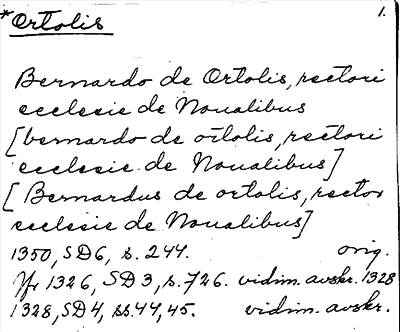 *Ortolis 1.
Bernardo de Ortolis, rectori
ecclesie de Noualibus
[bernardo de ortolis, rectori
ecclesie de Noualibus]
[Bernardus de ortolis, rector
ecclesie de Noualibus]
1350, SD6, s. 244. orig.
Jfr 1326, SD3, s. 726. vidim. avskr. 1328
1328, SD4, ss. 44, 45. vidim. avskr.